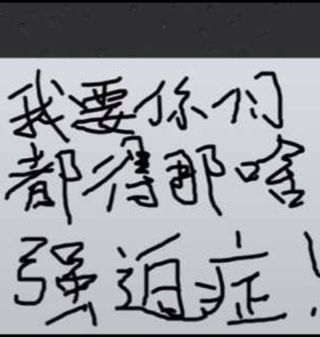 我要你们
都得那啥
强迫症！